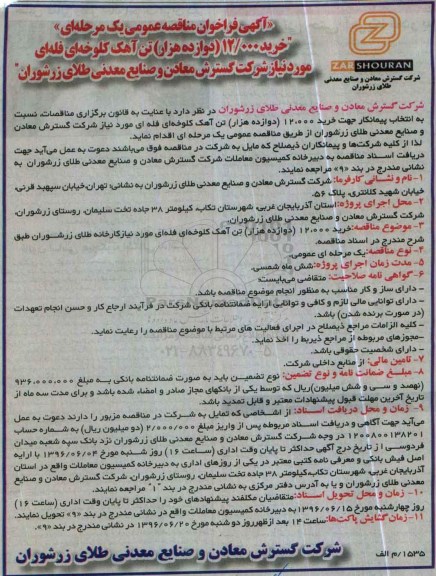 «آگهی فراخوان مناقصه عمومی یک مرحله‌ای»
"خرید ۱۲/۰۰۰ (دوازده هزار) تن آهک کلوخه‌ای فله‌ای
مورد نیاز شرکت گسترش معادن و صنایع معدنی طلای زرشوران"
ZARSHOURAN
شرکت گسترش معادن و صنایع معدنی
طلای زرشوران
شرکت گسترش معادن و صنایع معدنی طلای زرشوران در نظر دارد با عنایت به قانون برگزاری مناقصات، نسبت
به انتخاب پیمانکار جهت خرید ۱۲،۰۰۰ (دوازده هزار) تن آهک کلوخه‌ای فله ای مورد نیاز شرکت گسترش معادن
و صنایع معدنی طلای زرشوران از طریق مناقصه عمومی یک مرحله ای اقدام نماید.
لذا از کلیه شرکت‌ها و پیمانکاران ذیصلاح که مایل به شرکت در مناقصه فوق می‌باشند دعوت به عمل می‌آید جهت
دریافت اسناد مناقصه به دبیرخانه کمیسیون معاملات شرکت گسترش معادن و صنایع معدنی طلای زرشوران به
نشانی مندرج در بند «۹» مراجعه نمایند.
۱- نام و نشانی کارفرما: شرکت گسترش معادن و صنایع معدنی طلای زرشوران به نشانی: تهران، خیابان سپهبد قرنی،
خیابان شهید کلانتری، پلاک ۵۶.
۲- محل اجرای پروژه: استان آذربایجان غربی، شهرستان تکاب، کیلومتر ۳۸ جاده تخت سلیمان، روستای زرشوران،
شرکت گسترش معادن و صنایع معدنی طلای زرشوران.
۳- موضوع مناقصه: خرید ۱۲،۰۰۰ (دوازده هزار) تن آهک کلوخه‌ای فله‌ای مورد نیاز کارخانه طلای زرشوران طبق
شرح مندرج در اسناد مناقصه.
۴- نوع مناقصه: یک مرحله ای عمومی.
۵- مدت زمان اجرای پروژه: شش ماه شمسی.
۶- گواهی نامه صلاحیت: متقاضی می‌بایست:
- دارای ساز و کار مناسب به منظور انجام موضوع مناقصه باشد.
- دارای توانایی مالی لازم و کافی و توانایی ارایه ضمانتنامه بانکی شرکت در فرآیند ارجاع کار و حسن انجام تعهدات
(در صورت برنده شدن) باشد.
- کلیه الزامات مراجع ذیصلاح در اجرای فعالیت های مرتبط با موضوع مناقصه را رعایت نماید.
- مجوزهای مربوطه از مراجع ذیربط را اخذ نماید.
- دارای شخصیت حقوقی باشد.
۷- تامین مالی: از منابع داخلی شرکت.
۸- مبلغ ضمانت نامه و نوع تضمین: نوع تضمین باید به صورت ضمانتنامه بانکی به مبلغ ۹۳۶،۰۰۰،۰۰۰
(نهصد و سی و شش میلیون) ریال که توسط یکی از بانکهای مجاز صادر و امضاء شده باشد و برای مدت سه ماه از
تاریخ آخرین مهلت قبول پیشنهادات معتبر و قابل تمدید باشد.
۹- زمان و محل دریافت اسناد: از اشخاصی که تمایل به شرکت در مناقصه مزبور را دارند دعوت به عمل
می‌آید جهت آگاهی و دریافت اسناد مربوطه پس از واریز مبلغ ۲/۰۰۰/۰۰۰ (دو میلیون ریال) به شماره حساب
در وجه شرکت گسترش معادن و صنایع معدنی طلای زرشوران نزد بانک سپه شعبه میدان
فردوسی از تاریخ درج آگهی حداکثر تا پایان وقت اداری (ساعت ۱۶) روز شنبه مورخ ۱۳۹۶/۰۶/۰۴ با ارایه
اصل فیش بانکی و معرفی نامه کتبی معتبر در یکی از روزهای اداری به دبیرخانه کمیسیون معاملات واقع در استان
آذربایجان غربی، شهرستان تکاب، کیلومتر ۳۸ جاده تخت سلیمان، روستای زرشوران، شرکت گسترش معادن و صنایع
معدنی طلای زرشوران و یا به آدرس دفتر مرکزی به نشانی مندرج در بند "۱" مراجعه نمایند.
۱۰- زمان و محل تحویل اسناد: متقاضیان مکلفند پیشنهادهای خود را حداکثر تا پایان وقت اداری (ساعت ۱۶)
روز چهارشنبه مورخ ۱۳۹۶/۰۶/۱۵ به دبیرخانه کمیسیون معاملات واقع در نشانی مندرج در بند «۹» تحویل نمایند.
۱۱- زمان گشایش پاکت‌ها: ساعت ۱۴ بعد از ظهر روز دوشنبه مورخ ۱۳۹۶/۰۶/۲۰ در نشانی مندرج در بند «۹».
شرکت گسترش معادن و صنایع معدنی طلای زرشوران
۱۵۳۵/م الف